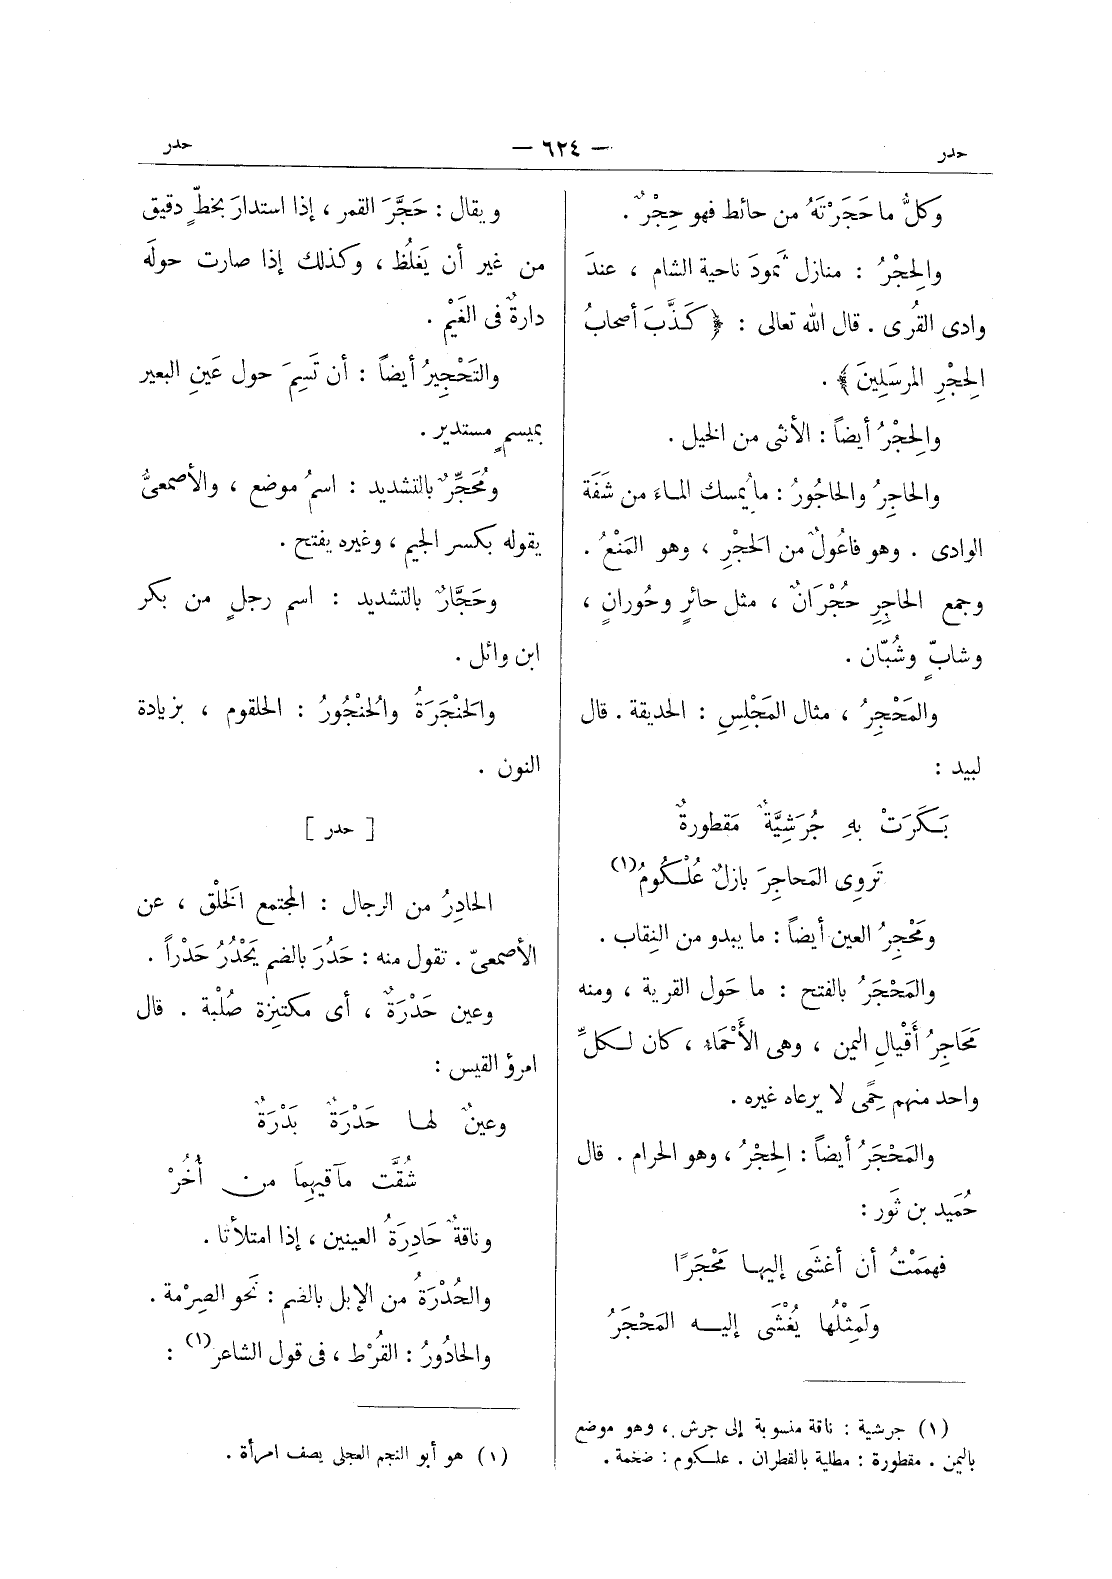 حدر
— ٦٢٤ —
حدر
وكلُّ ما حَجَرْتَهُ من حائط فهو حِجْرٌ .
والحِجْرُ : منازل ثمودَ ناحية الشام ، عندَ
وادى القُرى . قال الله تعالى : ﴿ كَذَّبَ أصحابُ
الحِجْرِ المرسَلِينَ ﴾ .
والحِجْرُ أيضاً : الأنثى من الخيل .
والحاجِرُ والحاجُورُ : ما يُمسك الماءَ من شَفَة
الوادى . وهو فاعُولٌ من الحَجْرِ ، وهو المَنْعُ .
وجمع الحاجِرِ حُجْرَانٌ ، مثل حائرٍ وحُورانٍ ،
وشابٍّ وشُبّان .
والمَحْجِرُ ، مثال المَجْلِسِ : الحديقة . قال
لبيد :
بَكَرَتْ بهِ جُرَشِيَّةٌ مَقطورةٌ
تَروِى المَحاجِرَ بازلٌ عُلْكُومُ(١)
ومَحْجِرُ العين أيضاً : ما يبدو من النِقاب .
والمَحْجَرُ بالفتح : ما حَول القرية ، ومنه
مَحَاجِرُ أَقْيالِ اليمن ، وهى الأَحْمَاءُ ، كان لكلِّ
واحد منهم حِمًى لا يرعاه غيره .
والمَحْجَرُ أيضاً : الحِجْرُ ، وهو الحرام . قال
حُمَيد بن ثَور :
فهمَمْتُ أن أغشَى إليها مَحْجَرًا
ولَمِثْلُها يُغْشَى إليه المَحْجَرُ
(١) جرشية : ناقة منسوبة إلى جرش ، وهو موضع
باليمن . مقطورة : مطلية بالقطران . علكوم : ضخمة .
ويقال : حَجَّرَ القمر ، إذا استدارَ بخطٍّ دقيق
من غير أن يَغلُظ ، وكذلك إذا صارت حولَه
دارةٌ فى الغَيْم .
والتَحْجِيرُ أيضاً : أن تَسِمَ حول عَينِ البعير
بميسمٍ مستدير .
ومُحَجِّرٌ بالتشديد : اسمُ موضع ، والأصمعىُّ
يقوله بكسر الجيم ، وغيره يفتح .
وحَجَّارٌ بالتشديد : اسم رجلٍ من بكر
ابن وائل .
والحَنْجَرَةُ والحُنْجُورُ : الحلقوم ، بزيادة
النون .
[ حدر ]
الحادِرُ من الرجال : المجتمع الخَلْق ، عن
الأصمعىّ . تقول منه : حَدُرَ بالضم يَحْدُرُ حَدْراً .
وعين حَدْرَةٌ ، أى مكتنِزة صُلْبة . قال
امرؤ القيس :
وعينٌ لها حَدْرَةٌ بَدْرَةٌ
شُقَّت مآقيهِما من أُخُرْ
وناقةٌ حَادِرَةُ العينين ، إذا امتلأتا .
والحُدْرَةُ من الإبل بالضم : نَحو الصِرْمة .
والحادُورُ : القُرْط ، فى قول الشاعر(١) :
(١) هو أبو النجم العجلى يصف امرأة .